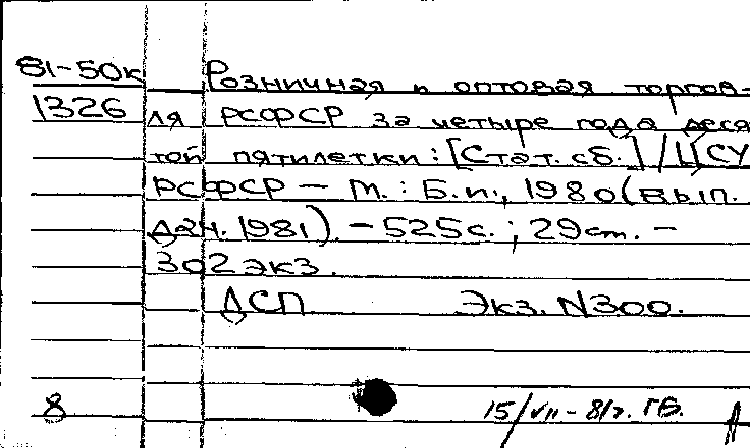 81-50к Розничная и оптовая торгов-
1326 ля РСФСР за четыре года деся
той пятилетки: [Стат. сб.] / ЦСУ
РСФСР – М. : Б.и., 1980 (вып.
дан. 1981). – 525 с. ; 29 см. –
302 экз.
ДСП Экз. N300.
8 15/VII-81г. ГБ.